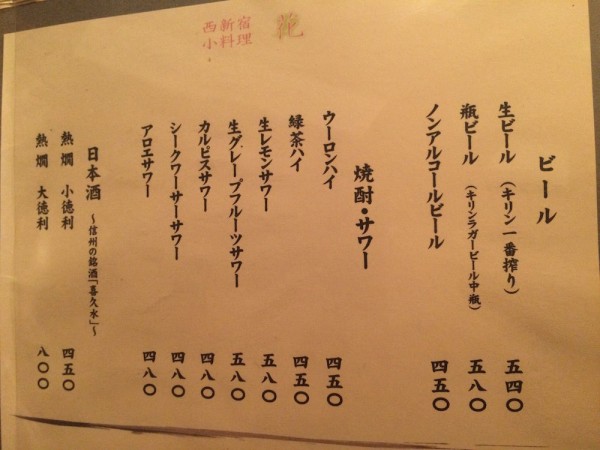 西新宿
小料理
花
ビール
生ビール （キリン一番搾り） 五四〇
瓶ビール （キリンラガービール中瓶） 五八〇
ノンアルコールビール 四五〇
焼酎・サワー
ウーロンハイ 四五〇
緑茶ハイ 四五〇
生レモンサワー 五八〇
生グレープフルーツサワー 五八〇
カルピスサワー 四八〇
シークワーサーサワー 四八〇
アロエサワー 四八〇
日本酒 〜信州の銘酒「喜久水」〜
熱燗 小徳利 四五〇
熱燗 大徳利 八〇〇